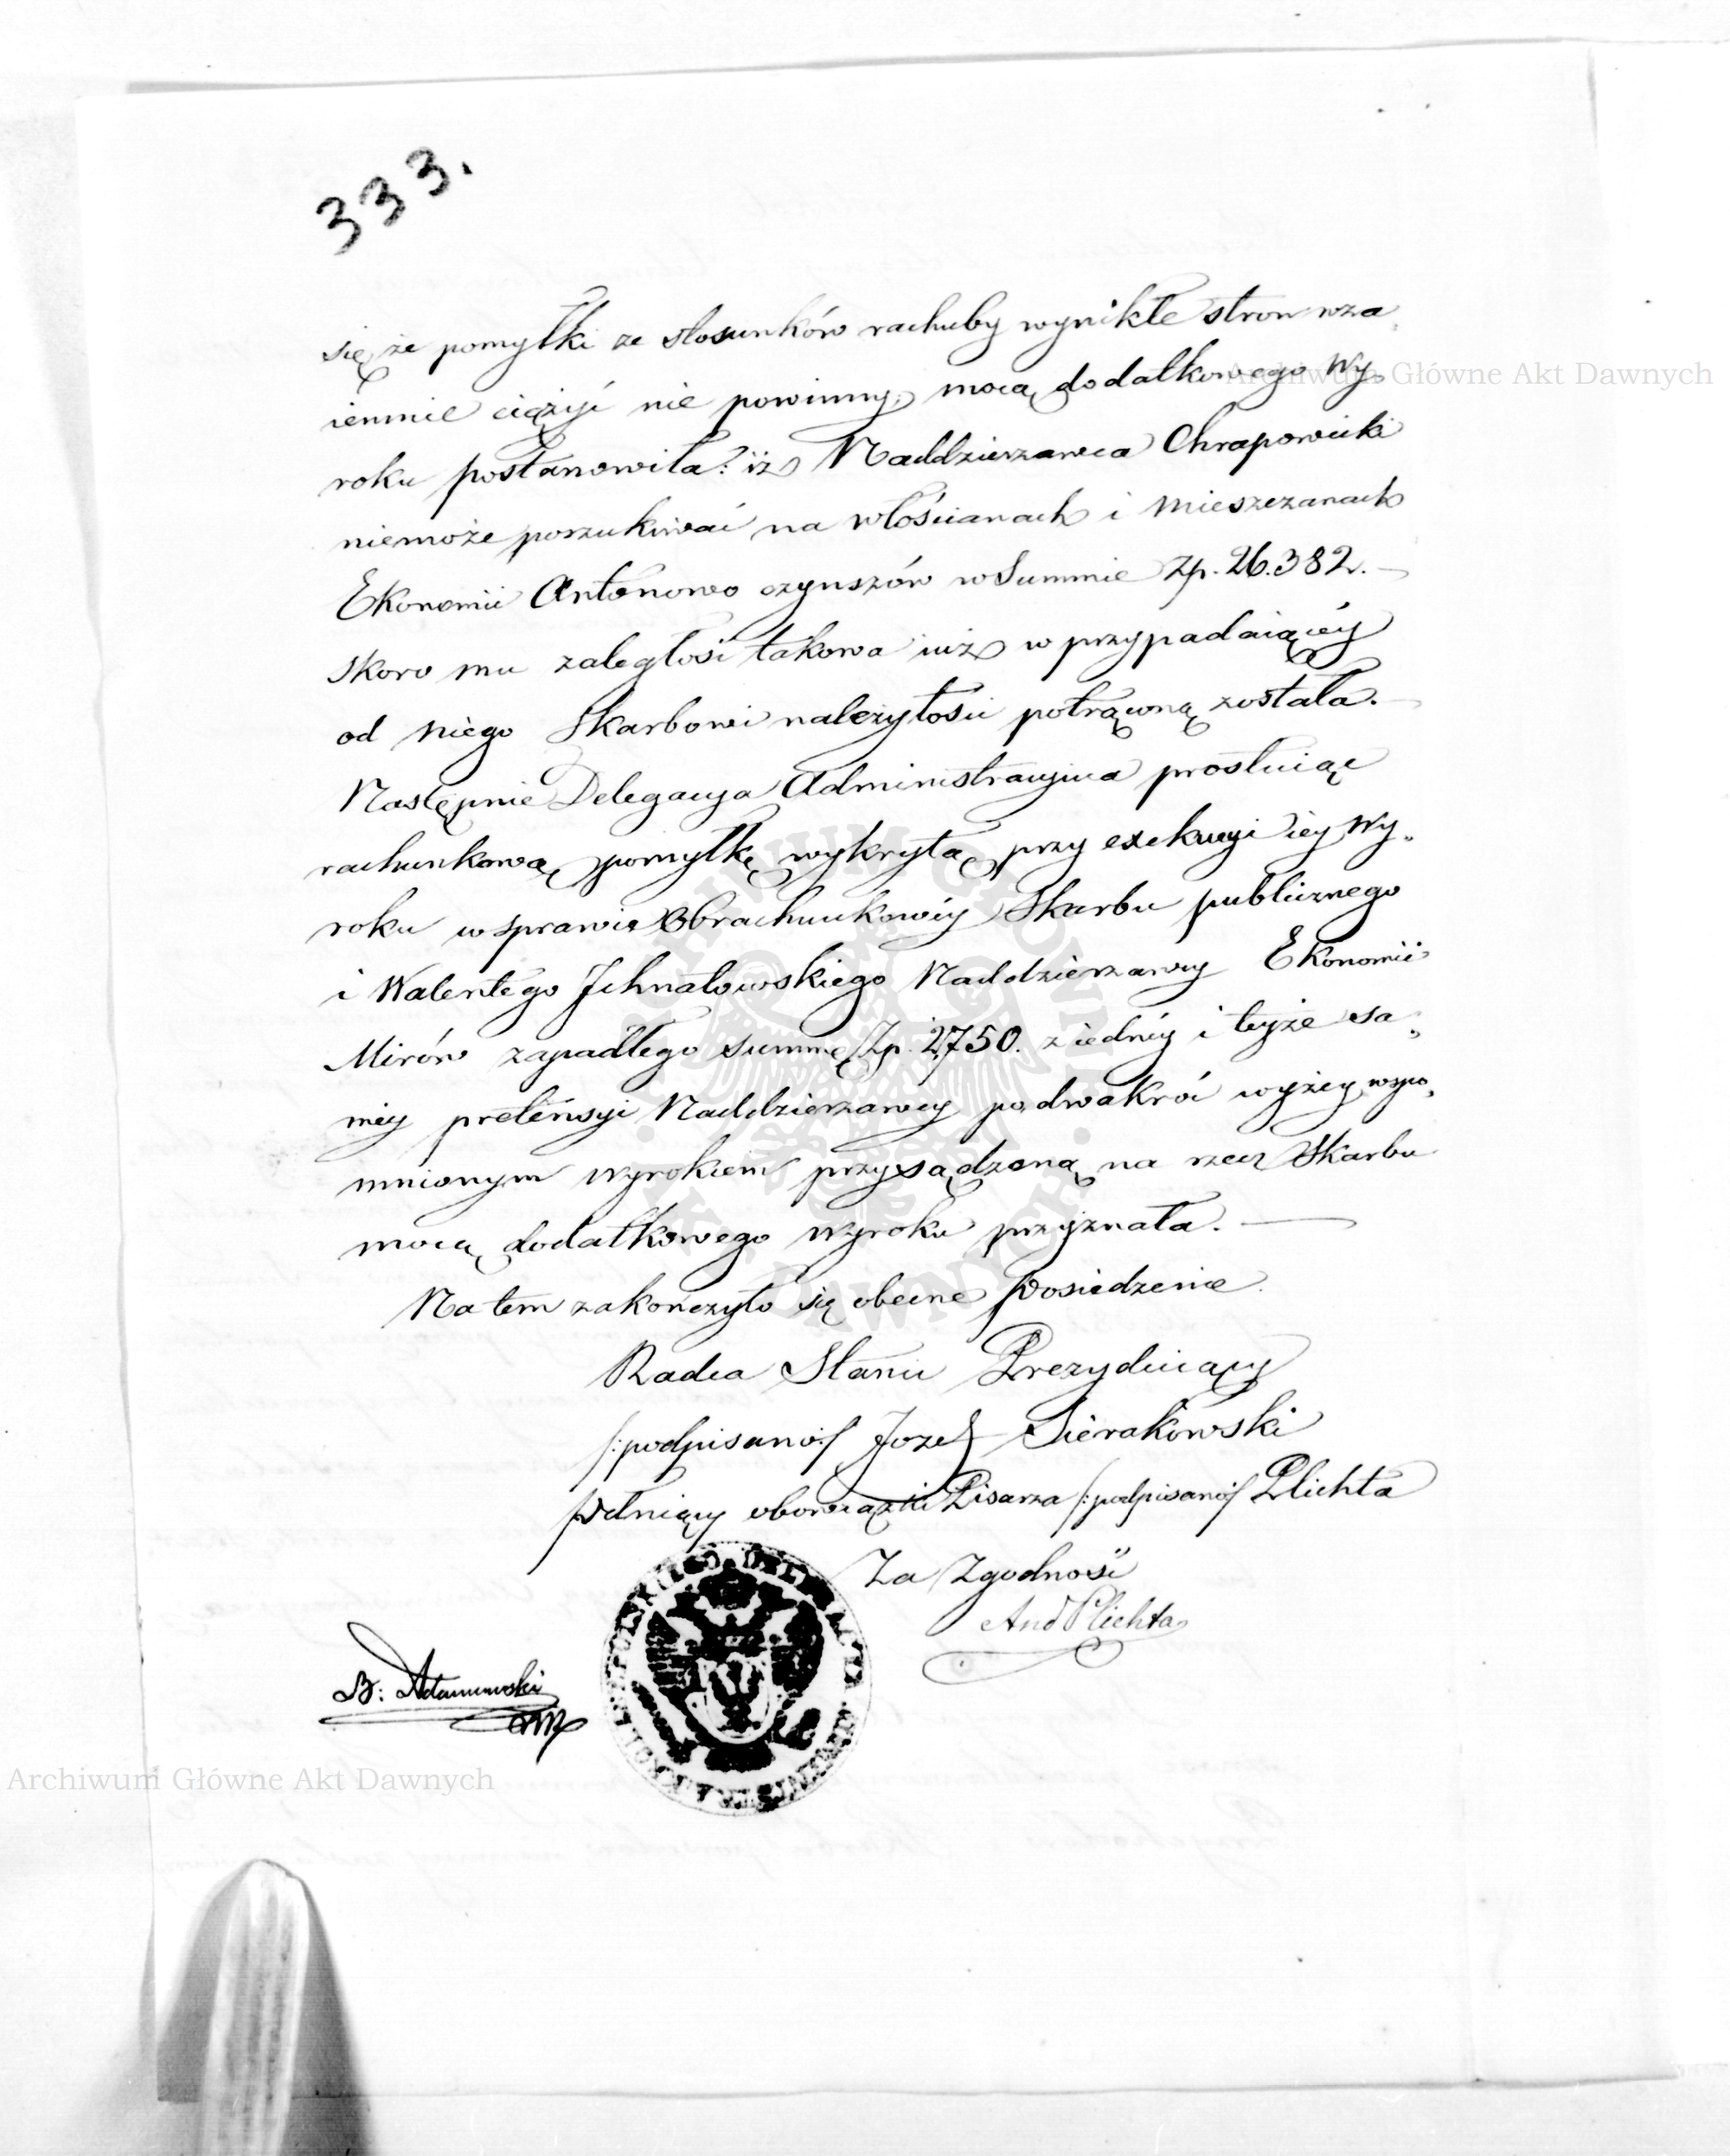 333.
się że pomyłki ze stosunków rachuby wynikłe stron wza„
iemnie ciężyć nie powinny, mocą dodatkowego Wy„
Archiwum Główne Akt Dawnych
roku postanowiła: iż Naddzierzawca Chrapowicki
niemoże poszukiwać na włościanach i mieszczanach
Ekonomii Antonowo czynszów w Summie Zp. 26.382. —
skoro mu zaległość takowa iuż w przypadaiącéy
od niego Skarbowi należytości potrąconą została. —
Następnie Delegacya Administracyjna prostuiąc
rachunkową pomyłkę wykrytą przy exekucyi iey Wy„
roku w sprawie Obrachunkowéy Skarbu publicznego
i Walentego Ichnatowskiego Naddzierzawcy Ekonomii
Mirów zapadłego summę Zp. 2,750. z iednéy i teyże sa„
méy pretensyi Naddzierzawcy podwakroć wyżey wspo„
mnionym wyrokiem przysądzoną na rzecz Skarbu
mocą dodatkowego wyroku przyznała. —
Na tem zakończyło się obecne Posiedzenie.
Radca Stanu Prezyduiący
/:podpisano:/ Jozef Sierakowski
Pełniący obowiązki Pisarza /:podpisano:/ Plichta
Za Zgodność
And Plichta
B: Adamowski
Archiwum Główne Akt Dawnych